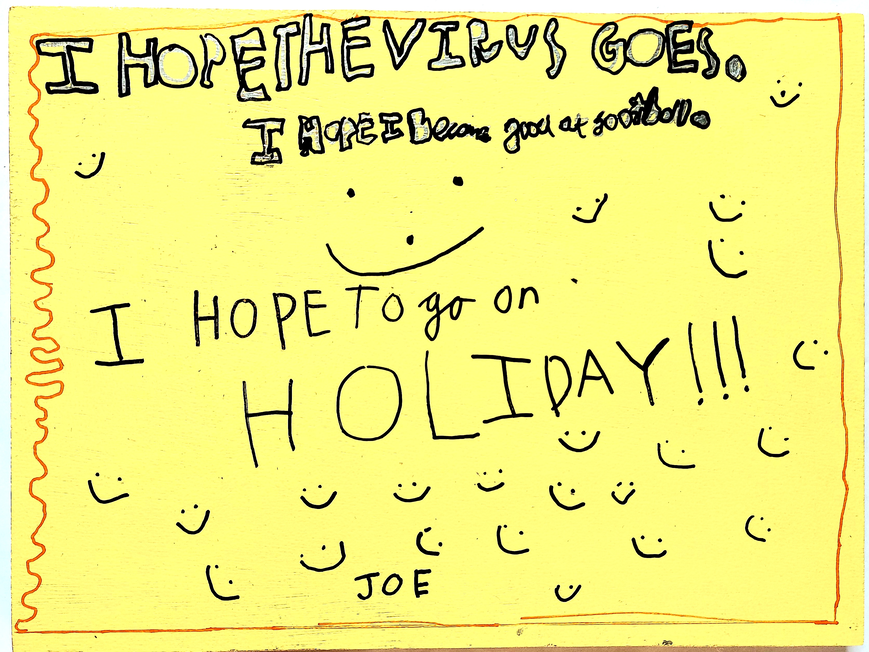 I HOPE THE VIRUS GOES.
I HOPE I become good at football.
I HOPE TO go on
HOLIDAY!!!
JOE